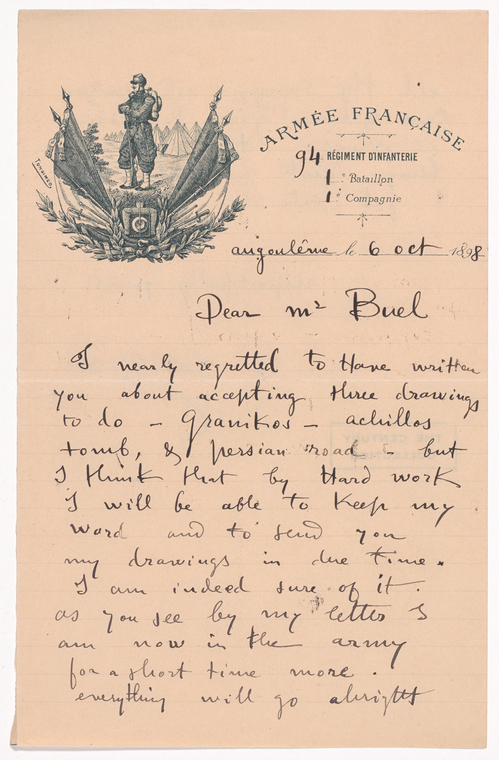 ARMÉE FRANÇAISE
94 RÉGIMENT D'INFANTERIE
1º Bataillon
1º Compagnie
angoulême le 6 oct 1898
Dear Mr Buel
I nearly regretted to Have written
you about accepting three drawings
to do – Granikos – achillos
tomb, & persian road – but
I think that by Hard work
I will be able to Keep my
word and to send you
my drawings in due time.
I am indeed sure of it.
as you see by my letter I
am now in the army
for a short time more.
everything will go alright